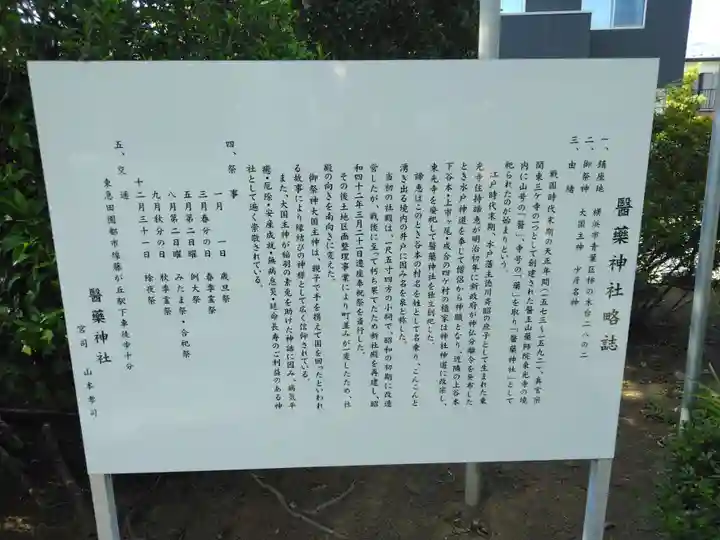 醫藥神社略誌
一、鎮座地　横浜市青葉区柿の木台二八の二
二、御祭神　大国主神　少彦名神
三、由緒
戦国時代末期の天正年間(一五七三〜一五九二、真言宗
関東三ケ寺の一つとして創建された醫王山藥師院東光寺の境
内に山号の「醫」、寺号の「藥」を取り「醫藥神社」として
祀られたのが始まりという。
江戸時代末期、水戸藩主徳川斉昭の庶子として生まれた東
光寺住持諦恵が明治初年に新政府が神仏分離令を発布した
とき水戸神道を奉じて僧侶から神職となり、近隣の上谷本
下谷本・上市ヶ尾・成合の四ケ村の檀家は神社神道に改宗し、
東光寺を廃祀して醫藥神社を独立別祀した。
諦恵はこのとき谷本の村名を姓として名乗り、こんこんと
湧き出る境内の井戸に因み名を泉と称した。
当初の社殿は、一尺五寸四方の小祠で、昭和の初期に改造
営したが、戦後に至って朽ち果てたため新社殿を再建し、昭
和四十二年三月二十一日遷座奉祝祭を斎行した。
その後土地区画整理事業により町並みが一変したため、社
殿の向きを南向きに変えた。
御祭神大国主神は、親子で手を携えて国を回ったといわれ
る故事により縁結びの神様として広く信仰されている。
また、大国主神が稲羽の素兎を助けた神話に因み、病気平
癒・厄除・安産成就・無病息災・延命長寿のご利益のある神
社として遍く崇敬されている。
四、祭事
一月　一日　歳旦祭
三月春分の日　春季霊祭
五月第二日曜　例大祭
八月第二日曜　みたま祭・合祀祭
九月秋分の日　秋季霊祭
十二月三十一日　除夜祭
五、交通
東急田園都市線藤が丘駅下車徒歩十分
醫藥神社
宮司　山本孝司